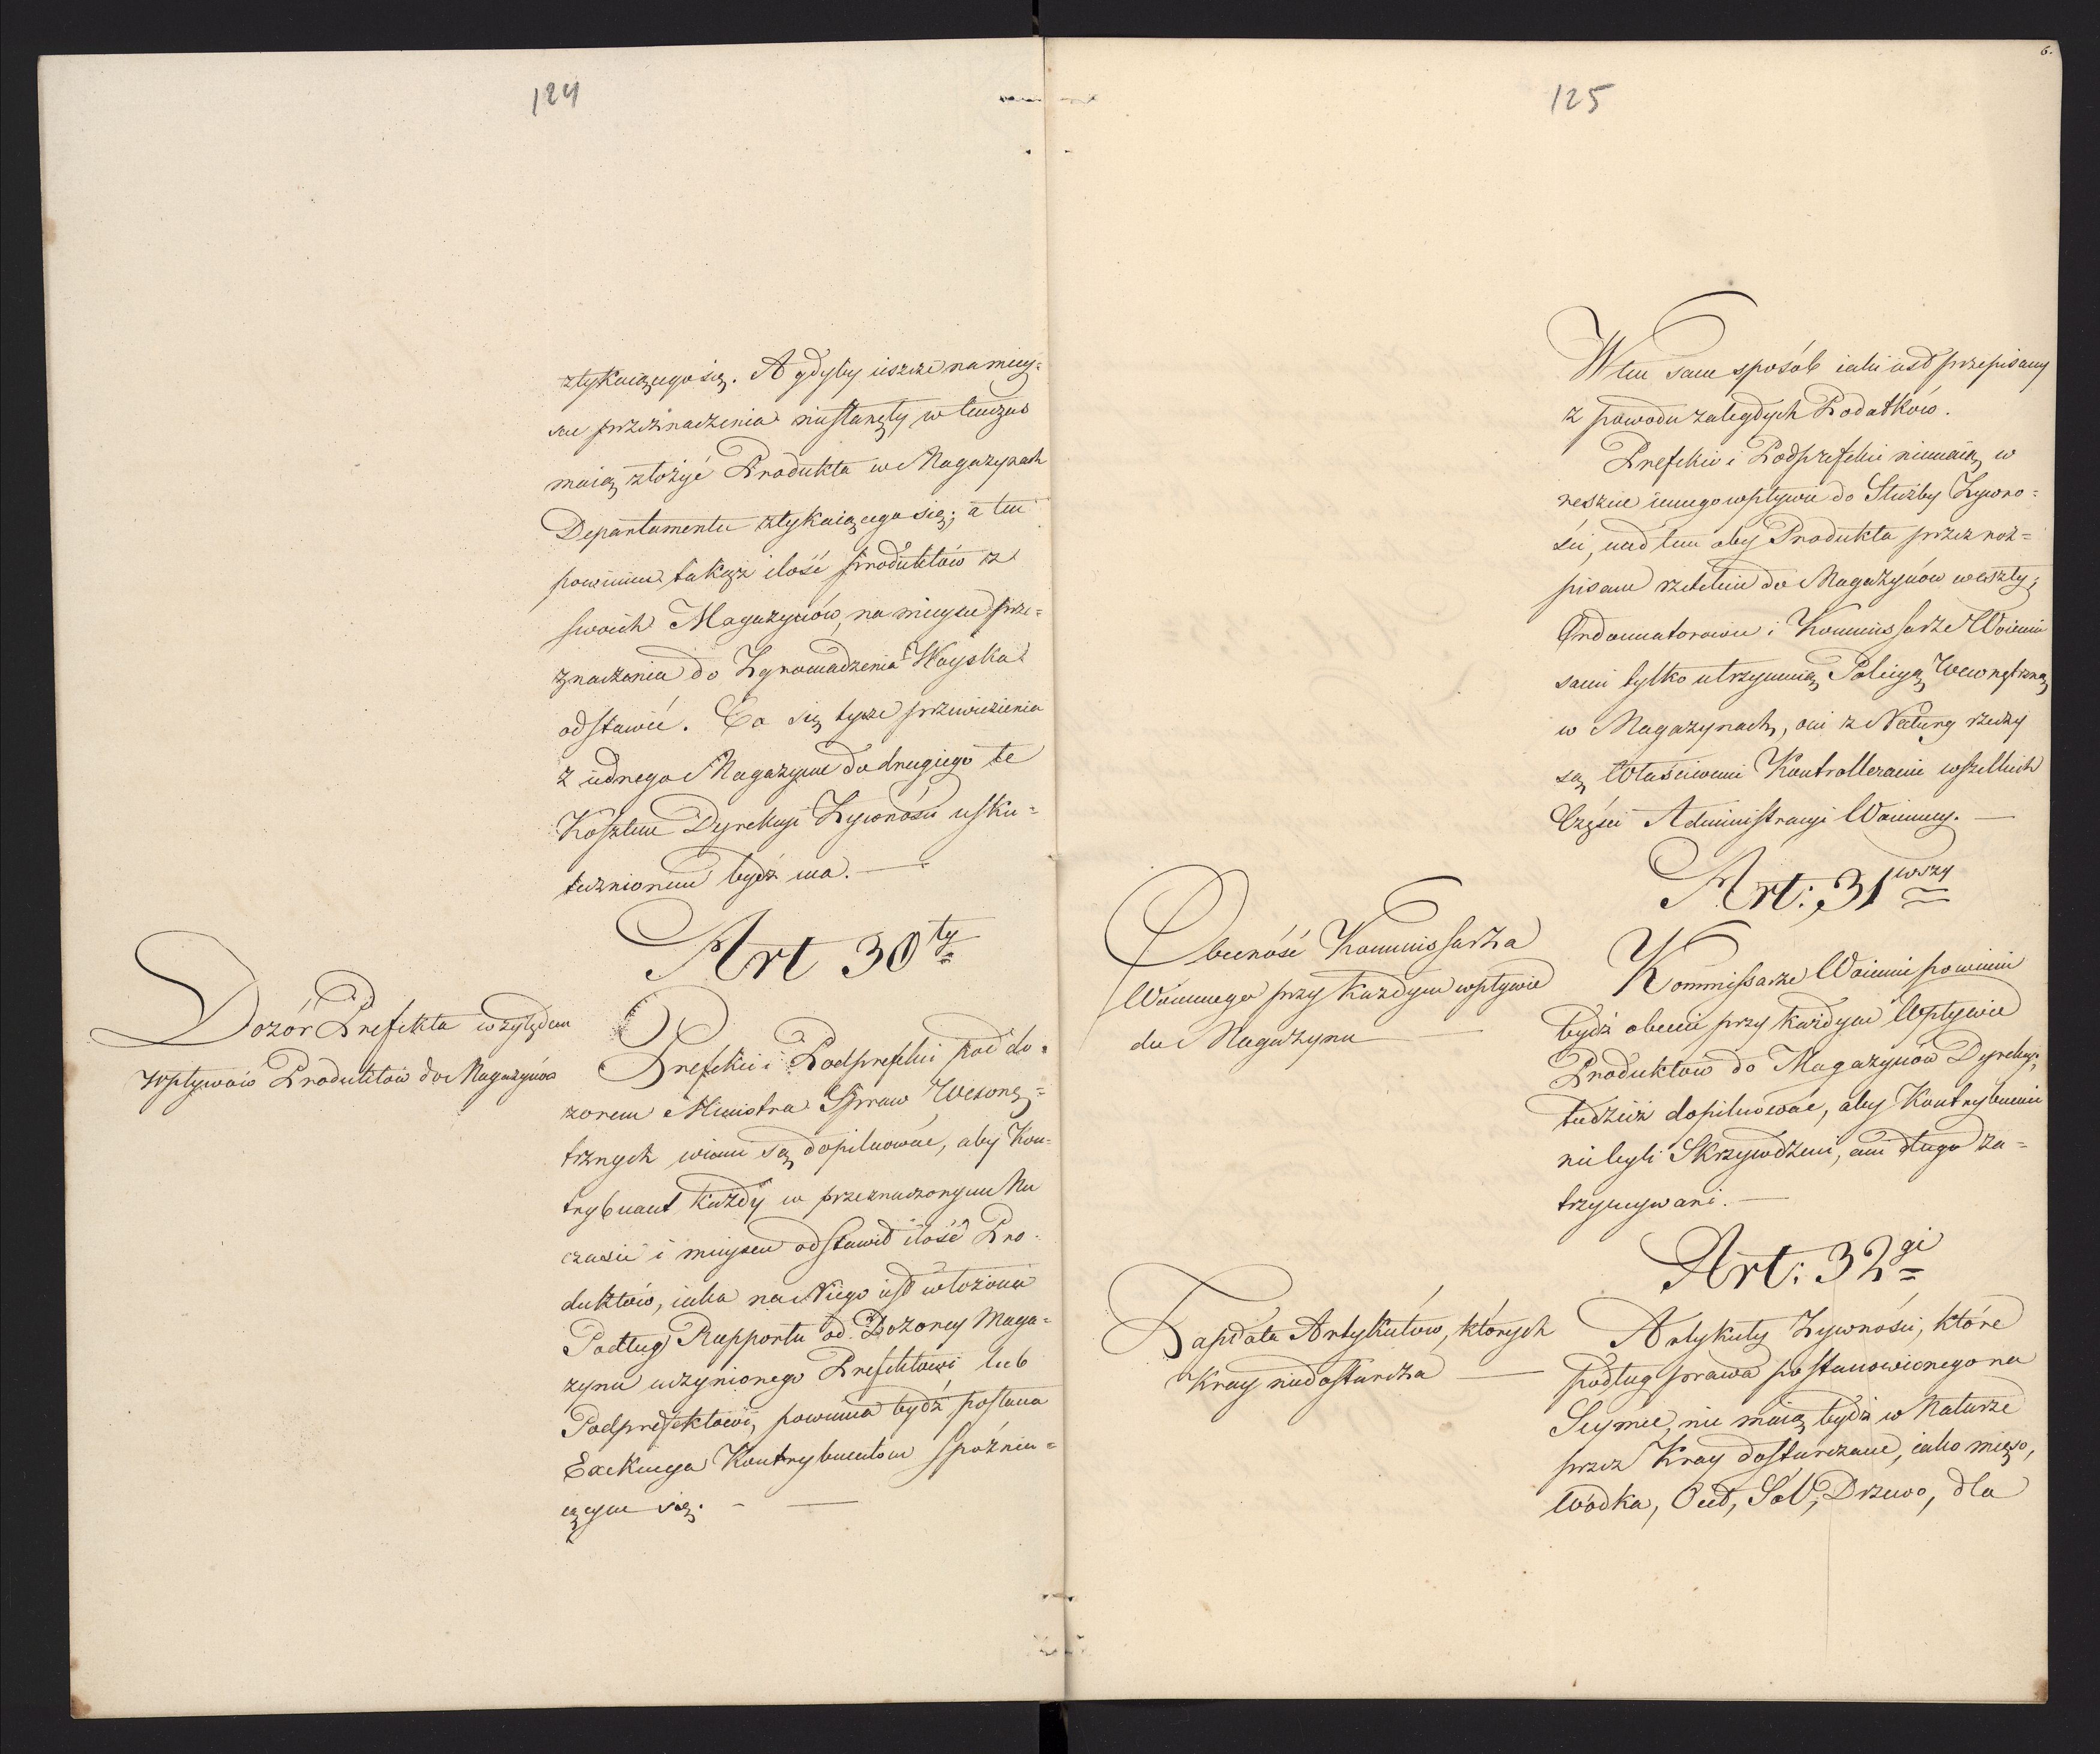 124
ztykaiącego się. A gdyby ieszcze na miey-
sce przeznaczenia niestanęły w tenczas
maią złożyć Produkta w Magazynach
Departamentu ztykaiącego się; a ten
powinien takąż ilość produktów z
swoich Magazynów, na mieysce prze=
znaczenia do Zgromadzenia Woyska
odstawić. Co się tycze przewiezienia
z iednego Magazynu do drugiego te
Kosztem Dyrekcyi Żywności usku=
tecznionem bydź ma. —
Art 30ty
Dozór Prefekta względem
Wpływów Produktów do Magazynów
Prefekci i Podprefekci pod do=
zorem Ministra Spraw Wewnę=
trznych winni są dopilnować, aby Kon-
trybuent każdy w przeznaczonym Mu
czasie i mieyscu odstawił ilość Pro-
duktów, iaka na Niego iest włożona
Podług Rapportu od Dozorcy Maga=
zynu uczynionego Prefektowi, lub
Podprefektowi, powinna bydź posłana
Exekucya Kontrybuentom spóźnia=
iącym się. — —
6.
125
W ten sam sposób iaki iest przepisany
z powodu zaległych Podatków.
Prefekci i Podprefekci niemaią w
reszcie innego wpływu do Służby Żywno=
ści, nad ten aby Produkta przez roz=
pisane rzetelnie do Magazynów weszły;
Ordonnatorowie i Kommissarze Woienni
sami tylko utrzymuią Policyą Wewnętrzną
w Magazynach, oni z Natury rzeczy
są Właściwemi Kontrollerami wszelkich
Części Administracyi Woienney. —
Art: 31wszy
Obecność Kommissarza
Woiennego przy każdym wpływie
do Magazynu —
Kommissarze Woienni powinni
bydź obecni przy każdym Wpływie
Produktów do Magazynów Dyrekcyi,
tudzież dopilnować, aby Kontrybuenci
niebyli Skrzywdzeni, ani długo za=
trzymywani. —
Art: 32gi
Zapłata Artykułów, których
Kray niedostarcza —
Artykuły Żywności, które
podług prawa postanowionego na
Seymie, nie maią bydź w Naturze
przez Kray dostarczane, iako mięso,
Wódka, Ocet, Sól, Drzewo, dla